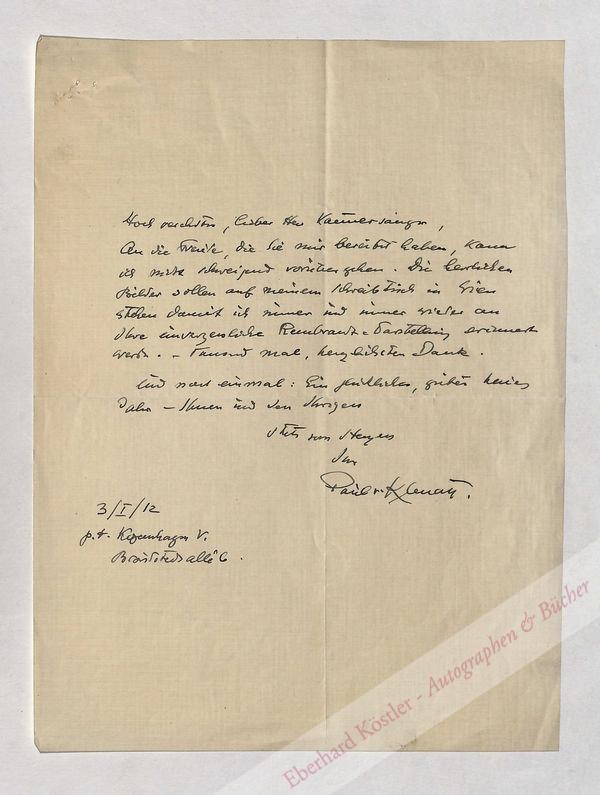 Hochverehrter, lieber Herr Kammersänger,
An die Freude, die Sie mir bereitet haben, kann
ich nicht schweigend vorübergehen. Die herrlichen
Bilder sollen auf meinem Schreibtisch in Wien
stehen damit ich immer und immer wieder an
Ihre unvergessliche Rembrandt-Darstellung erinnert
werde. – Tausend mal, herzlichsten Dank.
Und noch einmal: Ein glückliches, gutes neues
Jahr – Ihnen und den Ihrigen
Stets von Herzen
Ihr
Paul v. Klenau.
3/I/12
p.t. Kopenhagen V.
allé 6.
Eberhard Köstler - Autographen & Bücher